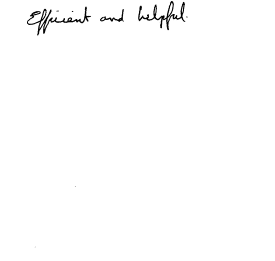 Efficient and helpful.